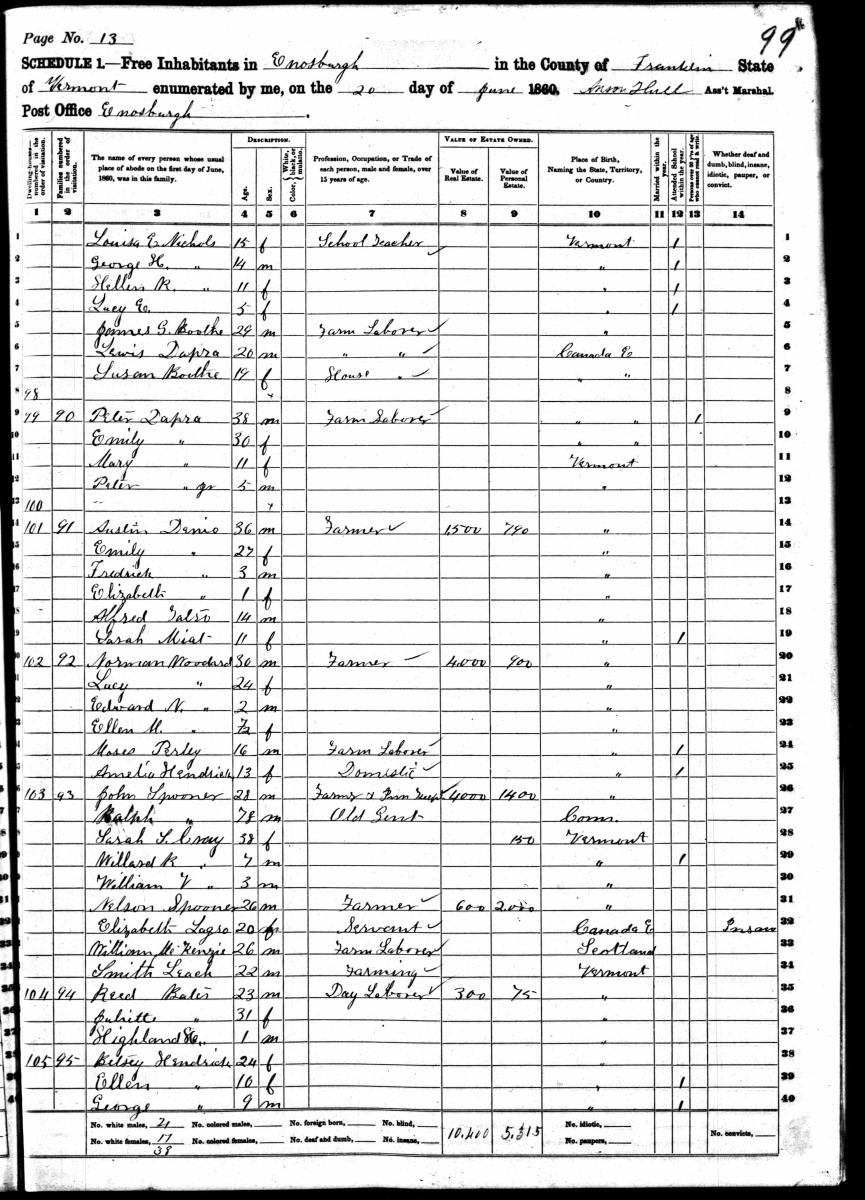 99
Page No. 13
SCHEDULE 1.—Free Inhabitants in Enosburgh in the County of Franklin State
of Vermont enumerated by me, on the 20 day of June 1860. Anson Hull Ass't Marshal.
Post Office Enosburgh
Dwelling-houses—numbered in the order of visitation. Families numbered in the order of visitation. The name of every person whose usual place of abode on the first day of June, 1860, was in this family. DESCRIPTION. Age. Sex. Color, White, black, or mulatto. Profession, Occupation, or Trade of each person, male and female, over 15 years of age. VALUE OF ESTATE OWNED. Value of Real Estate. Value of Personal Estate. Place of Birth, Naming the State, Territory, or Country. Married within the year. Attended School within the year. Persons over 20 years of age who cannot read & write. Whether deaf and dumb, blind, insane, idiotic, pauper, or convict.
1 2 3 4 5 6 7 8 9 10 11 12 13 14
1 Louisa E. Nichols 15 f School Teacher Vermont 1 1
2 George H. " 14 m " 1 2
3 Hellen R. " 11 f " 1 3
4 Lucy E. 5 f " 1 4
5 James G. Boothe 29 m Farm Laborer " 5
6 Lewis Dapra 20 m " " Canada E 6
7 Susan Boothe 19 f House " " " 7
8 98 8
9 99 90 Peter Dapra 38 m Farm Laborer " " 1 9
10 Emily " 30 f " " 10
11 Mary " 11 f Vermont 11
12 Peter " Jr 5 m " 12
13 100 " 13
14 101 91 Austin Danio 36 m Farmer 1,500 790 " 14
15 Emily " 27 f " 15
16 Fredrick " 3 m " 16
17 Elizabeth " 1 f " 17
18 Alfred 14 m " 18
19 Sarah 11 f " 1 19
20 102 92 Norman Woodard 30 m Farmer 4,000 900 " 20
21 Lucy " 24 f " 21
22 Edward N. " 2 m " 22
23 Ellen M. " f " 23
24 Moses Perley 16 m Farm Laborer " 1 24
25 Amelia Hendrick 13 f Domestic " 1 25
26 103 93 John Spooner 28 m Farmer & 4000 1400 " 26
27 Ralph " 78 m Old Gent Conn. 27
28 Sarah S. Cray 38 f 150 Vermont 28
29 Willard R " 7 m " 1 29
30 William V " 3 m " 30
31 Nelson Spooner 26 m Farmer 600 2,000 " 31
32 Elizabeth Lagro 20 f Servant Canada E Insan 32
33 William McKenzie 26 m Farm Laborer Scotland 33
34 Smith Leach 22 m Farming Vermont 34
35 104 94 Reed Bates 23 m Day Laborer 300 75 " 35
36 Juliette " 31 f " 36
37 Highland " 1 m " 37
38 105 95 Betsey Hendrick 24 f 38
39 Ellen " 10 f " 1 39
40 George " 9 m " 1 40
No. white males, 21 No. colored males, No. foreign born, No. blind, 10,400 5,315 No. idiotic,
No. white females, 17 No. colored females, No. deaf and dumb, No. insane, No. paupers, No. convicts,
38